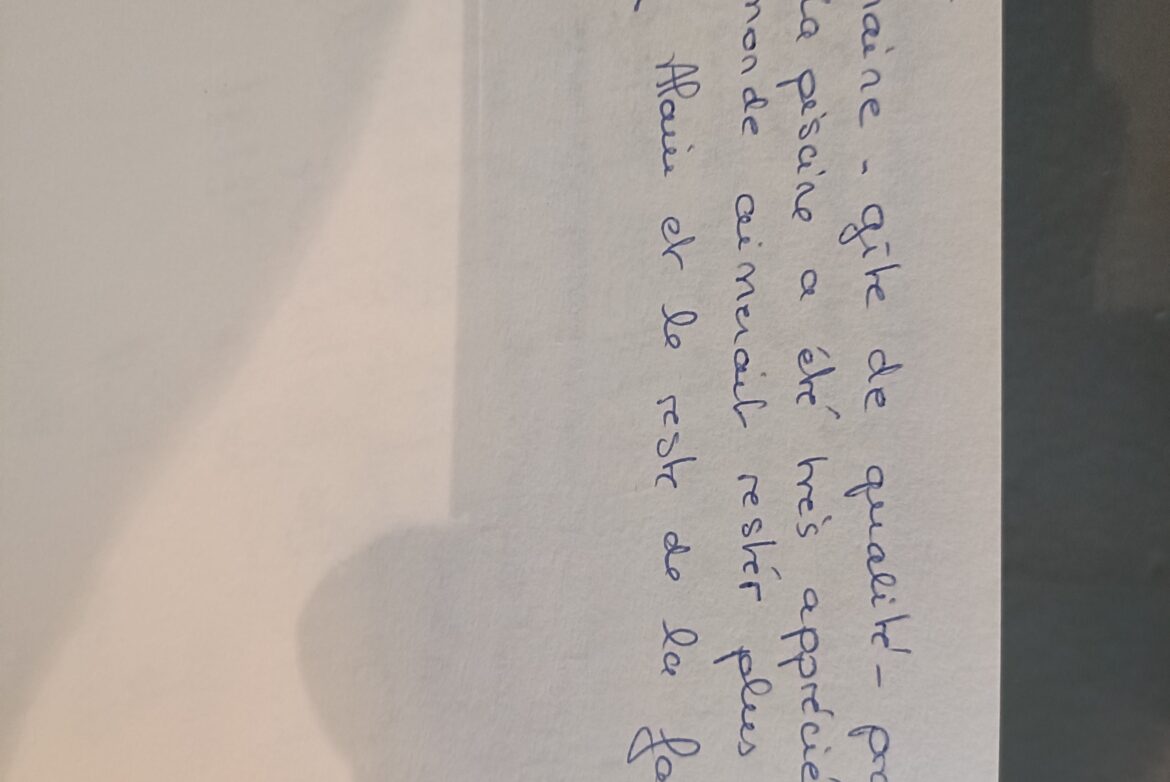 aine - gîte de qualité - pro
la piscine a été très apprécié
monde aimerait rester plus
Alain et le reste de la fa